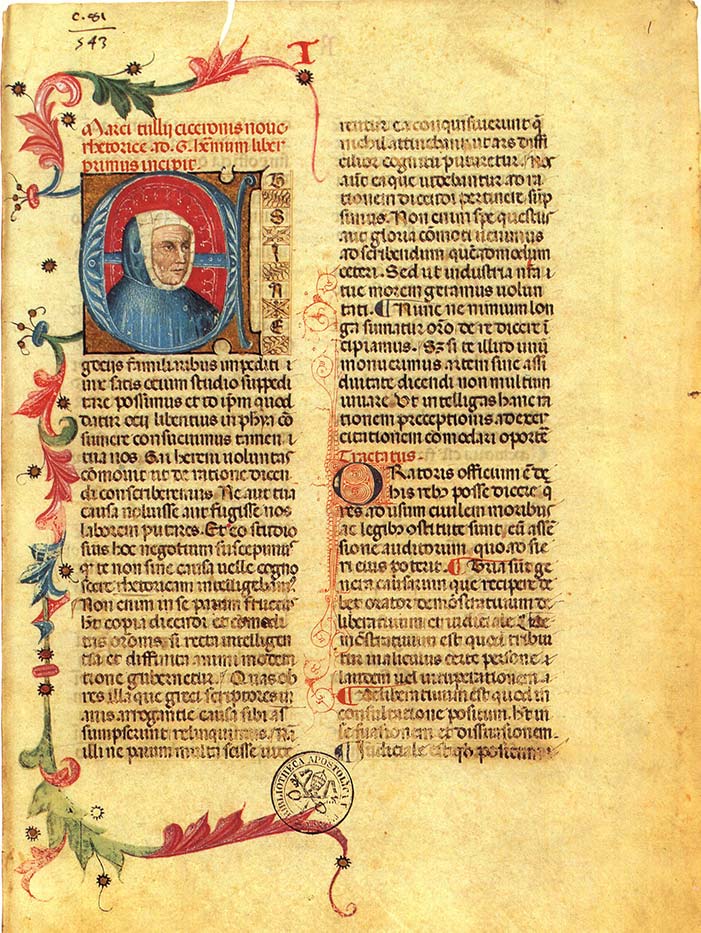 C. 81
543
1
T
Marci tullij ciceronis noue
rhetorice ad. G. herenium liber
primus incipit.
E
TSI IN NE
gociis familiaribus impediti
uix satis ocium studio suppedi
tare possumus et id ip̄m quod
datur ocii libentius in phỹa cō
sumere consueuimus tamen
tua nos. Gai hereni uoluntas
cōmouit ut de ratione dicen
di conscriberemus. Ne aut tua
causa noluisse aut fugisse nos
laborem putares. Et eo studio
sius hoc negotium suscepimus
q te non sine causa uelle cogno
scere rhetoricam intelligebam
Non enim in se parum fructus
h̄t copia dicendi et comodi
tas orōnis si recta intelligen
tia et diffinita animi modera
tione gubernetur. Quas ob
res illa que greci scriptores in
anis arrogantie causa sibi as
sumpserunt reliquimus. Na
illi ne parum multa scisse uide
rentur ea conquisiuerunt q̄
nichil attinebant ut ars diffi
cilior cognitu putaretur. Nos
aut ea que uidebantur ad ra
tionem dicendi pertinere sup
simus. Non enim spe questus
aut gloria cōmoti uenimus
ad scribendum quēadmodum
ceteri. Sed ut industria nr̄a
tue morem geramus uolun
tati. Nunc ne nimium lon
ga sumatur orō de re dicere i
cipiamus. Sz si te illud unū
monuerimus artem sine assi
duitate dicendi non multum
iuuare. Ut intelligas hanc ra
tionem preceptionis ad exer
citationem comodari oportē
Tractatus.
ORatoris officium ē de
his rebꝫ posse dicere q
res ad usum ciuilem moribus
ac legibꝫ cōstitute sunt cū assē
sione auditorum quoad fie
ri eius poterit. Tria sūt ge
nera causarum que recipere de
bet orator demōstratiuum de
liberatiuum et iudiciale De
mōstratiuum est quod tribui
tur in alicuius certe persone
laudem uel uituperationem
Deliberatiuum est quod in
consultatione positum. h̄t in
se suasionem et dissuasionem.
Judiciale est qd̄ positum
BIBLIOTHECA APOSTOLICA